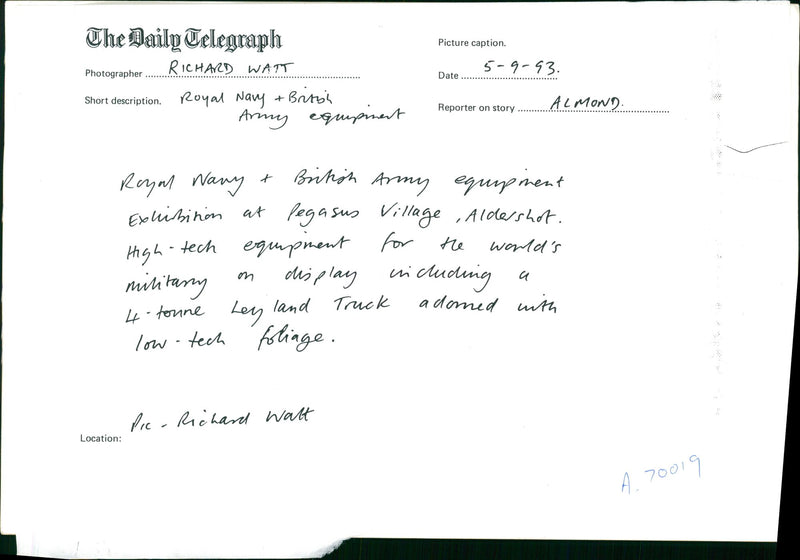 The Daily Telegraph
Picture caption.
Photographer RICHARD WATT
Date 5-9-93.
Short description. Royal Navy + British
Army equipment
Reporter on story ALMOND.
Royal Navy + British Army equipment
Exhibition at Pegasus Village, Aldershot.
High-tech equipment for the world's
military on display including a
4-tonne Leyland Truck adorned with
low-tech foliage.
Pic - Richard Watt
Location:
A. 70019